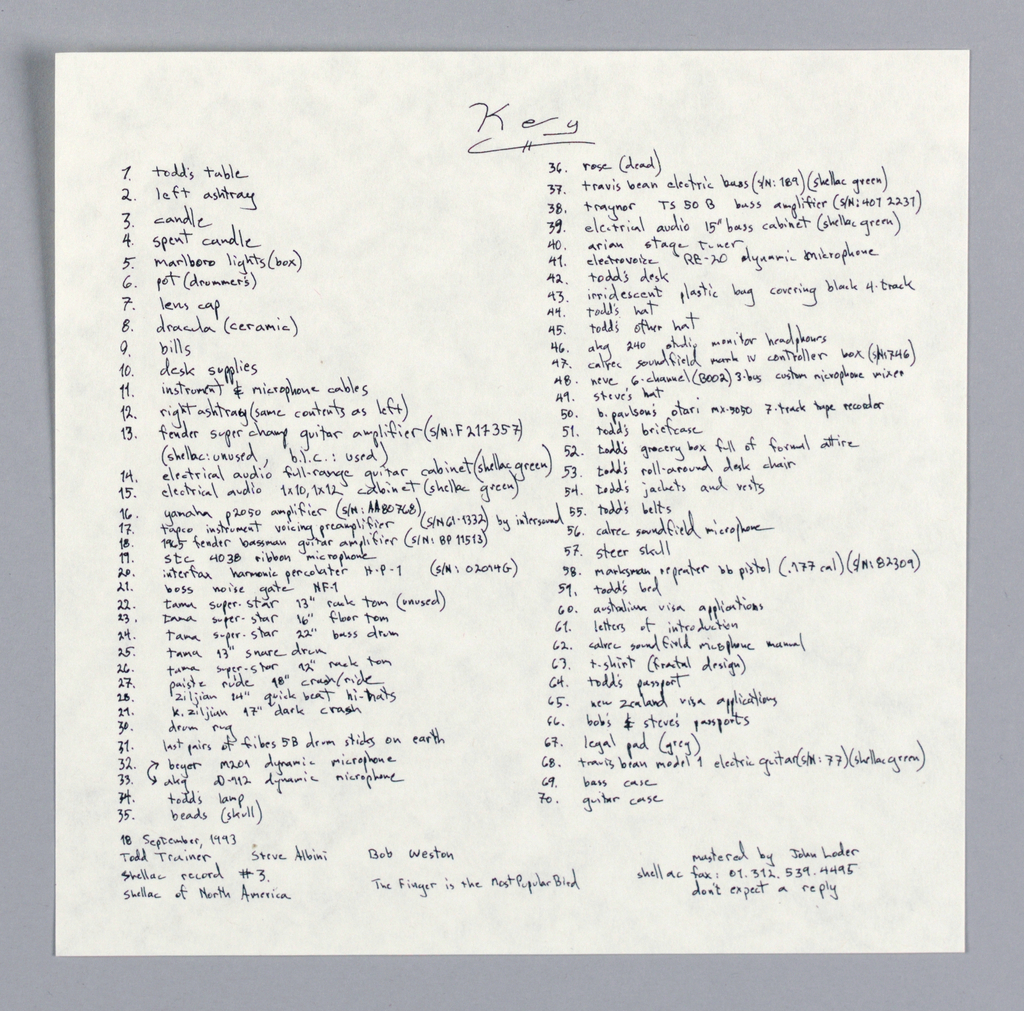 Key
1. todd's table
2. left ashtray
3. candle
4. spent candle
5. marlboro lights (box)
6. pot (drummer's)
7. lens cap
8. dracula (ceramic)
9. bills
10. desk supplies
11. instrument & microphone cables
12. right ashtray (same contents as left)
13. fender super champ guitar amplifier (S/N: F217357)
(shellac: unused, b.l.c.: used)
14. electrical audio full-range guitar cabinet (shellac green)
15. electrical audio 1x10, 1x12 cabinet (shellac green)
16. yamaha p2050 amplifier (S/N: AA80768)
17. tapco instrument voicing preamplifier (S/N G1-1332) by intersound
18. 1965 fender bassman guitar amplifier (S/N: BP 11513)
19. stc 4038 ribbon microphone
20. interfax harmonic percolater H-P-1 (S/N: 02014G)
21. boss noise gate NF-1
22. tama super-star 13" rack tom (unused)
23. tama super-star 16" floor tom
24. tama super-star 22" bass drum
25. tama 13" snare drum
26. tama super-star 12" rack tom
27. paiste rude 18" crash/ride
28. ziljian 14" quick beat hi-hats
29. k. ziljian 17" dark crash
30. drum rug
31. last pairs of fibes 5B drum sticks on earth
32. beyer m201 dynamic microphone
33. akg D-112 dynamic microphone
34. todd's lamp
35. beads (skull)
36. rose (dead)
37. travis bean electric bass (S/N: 189) (shellac green)
38. traynor TS 50 B bass amplifier (S/N: 407 2237)
39. electrial audio 15" bass cabinet (shellac green)
40. arian stage tuner
41. electrovoice RE-20 dynamic mikrophone
42. todd's desk
43. irridescent plastic bag covering black 4-track
44. todd's hat
45. todd's other hat
46. akg 240 studio monitor headphones
47. calrec soundfield mark iv controller box (S/N: 746)
48. neve 6-channel (B002) 3-bus custom microphone mixer
49. steve's hat
50. b. paulson's otari mx-5050 7-track tape recorder
51. todd's briefcase
52. todd's grocery box full of formal attire
53. todd's roll-around desk chair
54. todd's jackets and vests
55. todd's belts
56. calrec soundfield microphone
57. steer skull
58. marksman repeater bb pistol (.177 cal) (S/N: 82309)
59. todd's bed
60. australian visa applications
61. letters of introduction
62. calrec soundfield microphone manual
63. t-shirt (fractal design)
64. todd's passport
65. new zealand visa applications
66. bob's & steve's passports
67. legal pad (grey)
68. travis bean model 1 electric guitar (S/N: 77) (shellac green)
69. bass case
70. guitar case
18 September, 1993
Todd Trainer Steve Albini Bob Weston
Shellac record #3.
Shellac of North America
The Finger is the Most Popular Bird
mastered by John Loder
shellac fax: 01.312.539.4495
don't expect a reply